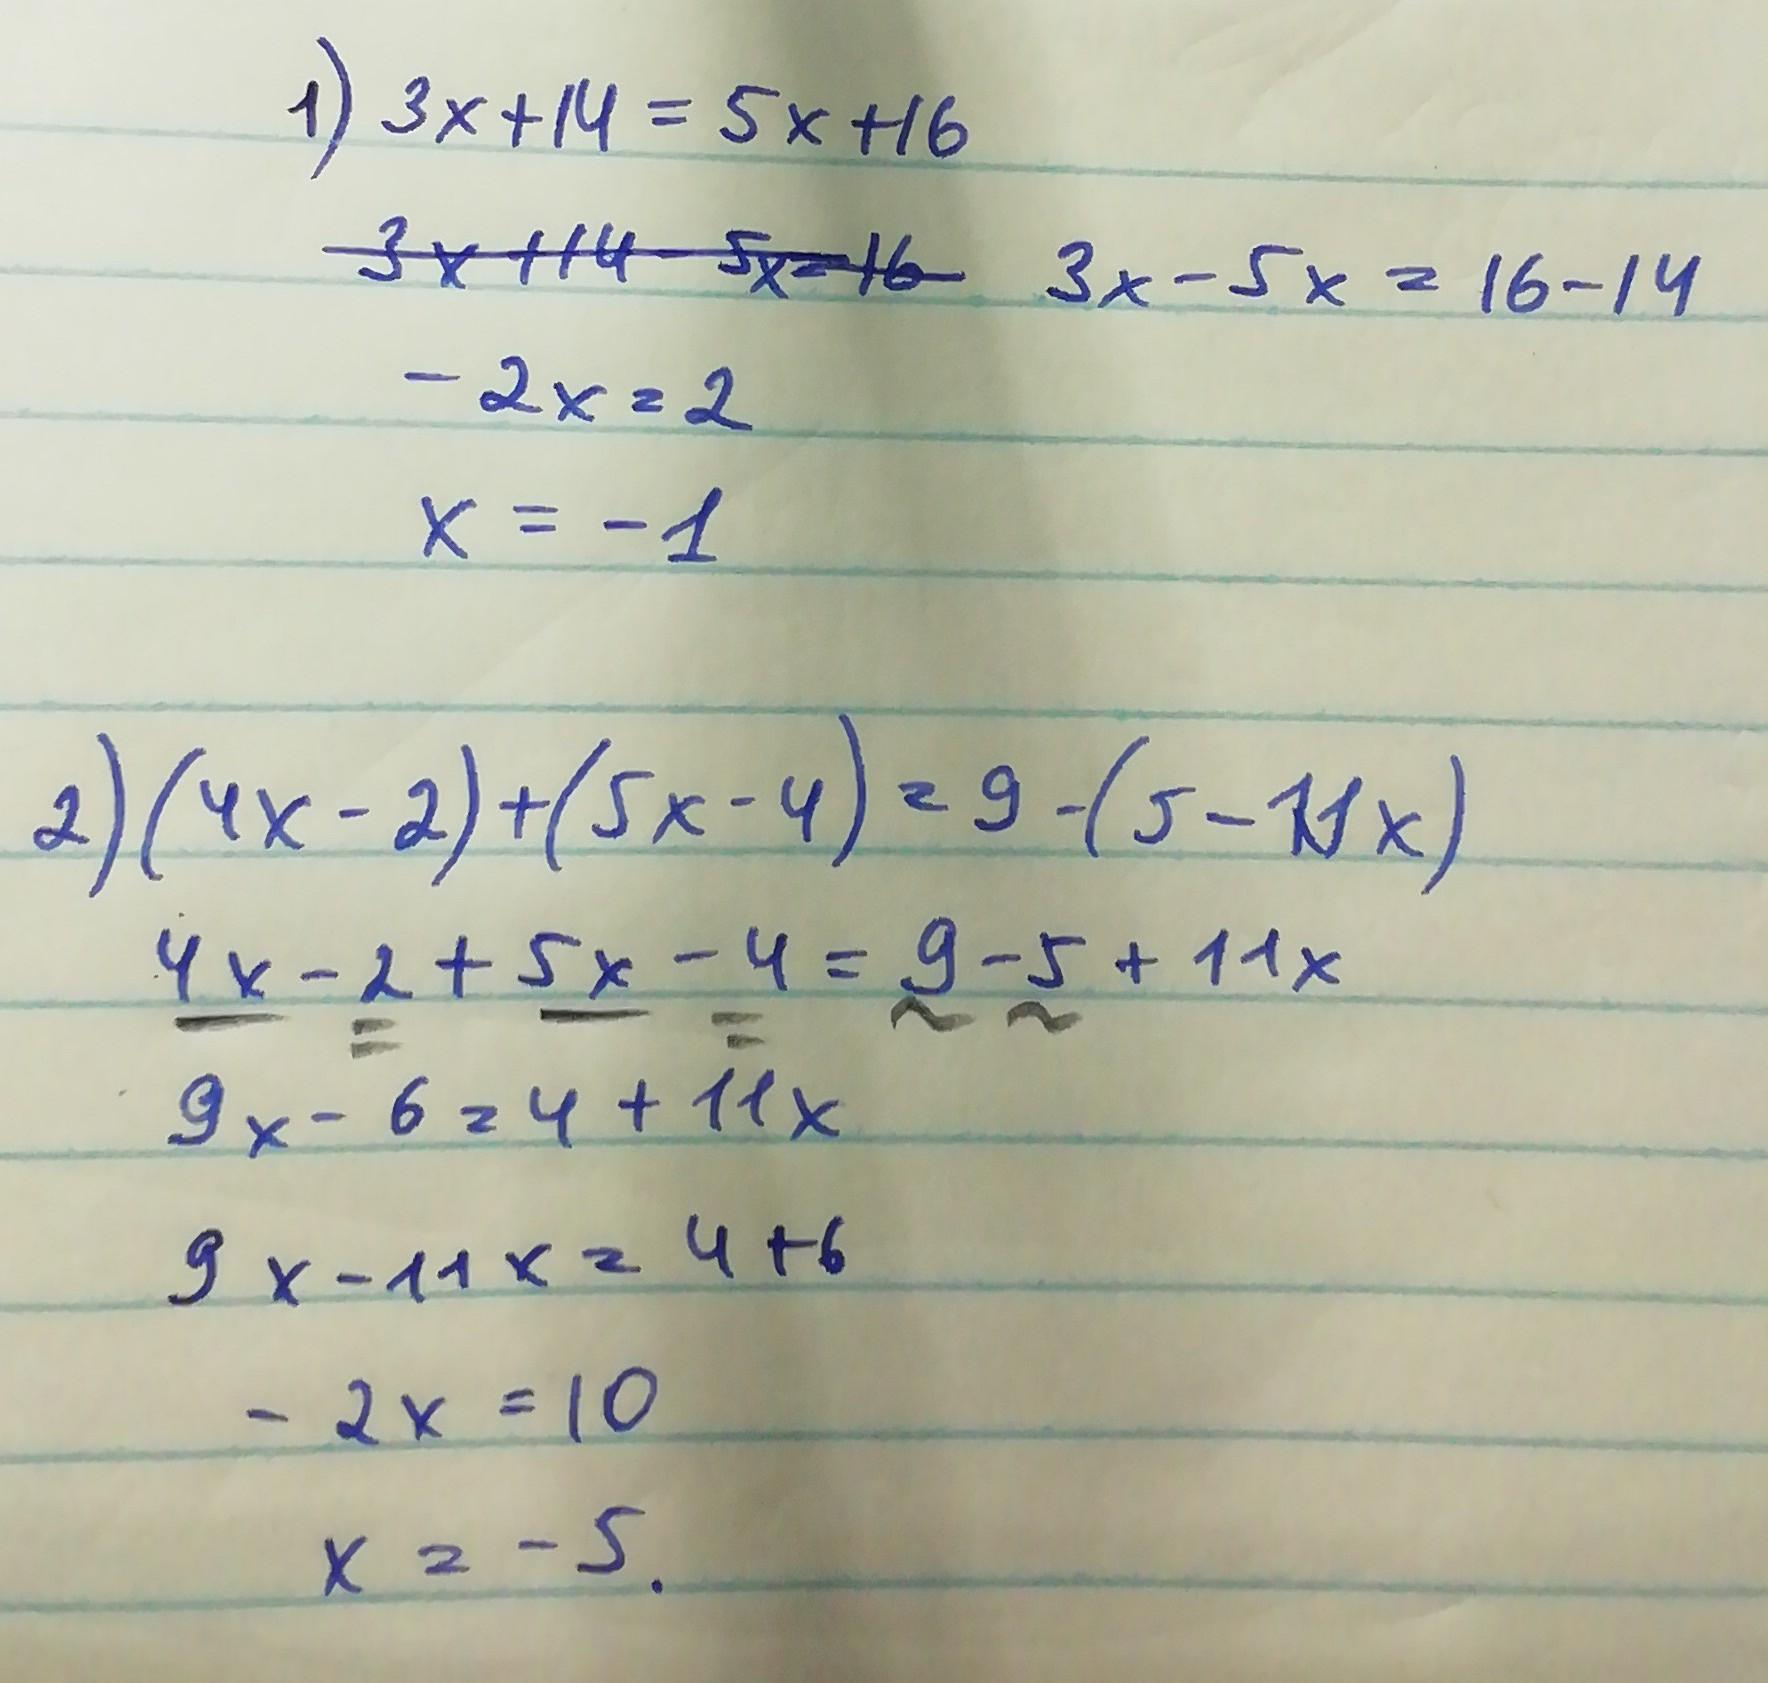 1) 3x+14=5x+16
3x+14-5x=16 3x-5x=16-14
-2x=2
x=-1
2) (4x-2)+(5x-4)=9-(5-11x)
4x-2+5x-4=9-5+11x
9x-6=4+11x
9x-11x=4+6
-2x=10
x=-5.